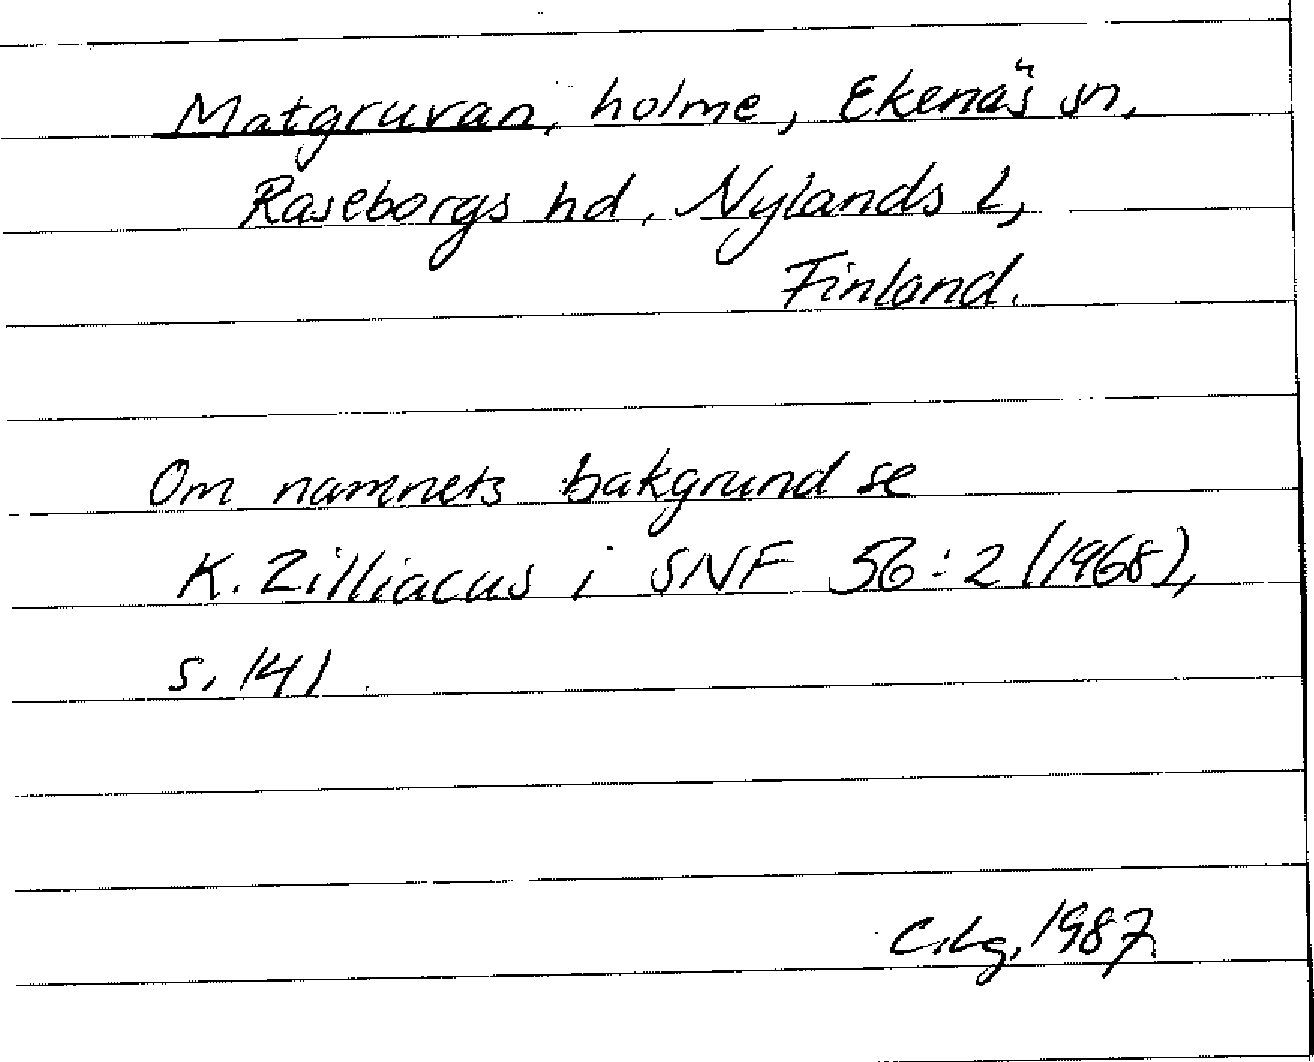 Matgruvan, holme, Ekenäs sn,
Raseborgs hd, Nylands l,
Finland.
Om namnets bakgrund se
K. Zilliacus i SNF 56:2 (1968),
s. 141.
C.Lg, 1987.